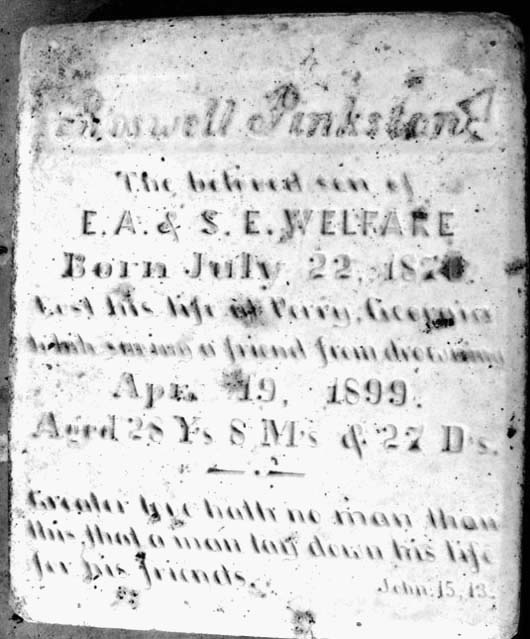 Roswell Pinkston
The beloved son of
E. A. & S. E. WELFARE
Born July, 22, 1870.
Lost his life at Perry, Georgia
while saving a friend from drowning
Apr. 19, 1899.
Aged 28 Ys 8 M's & 27 D's.
Greater love hath no man than
this that a man lay down his life
for his friends.
John 15, 13.